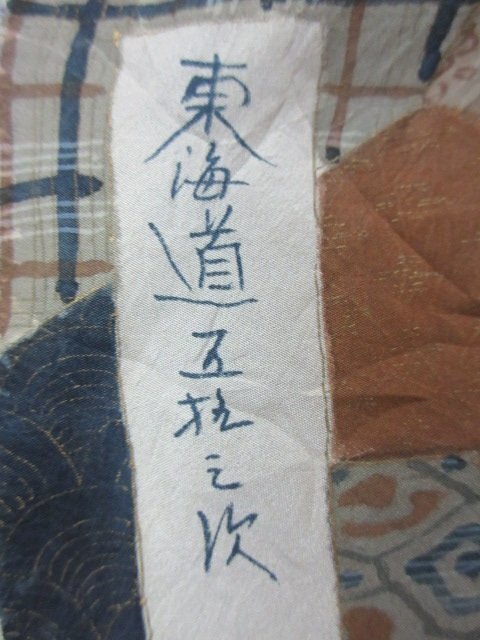 東海道五拾三次